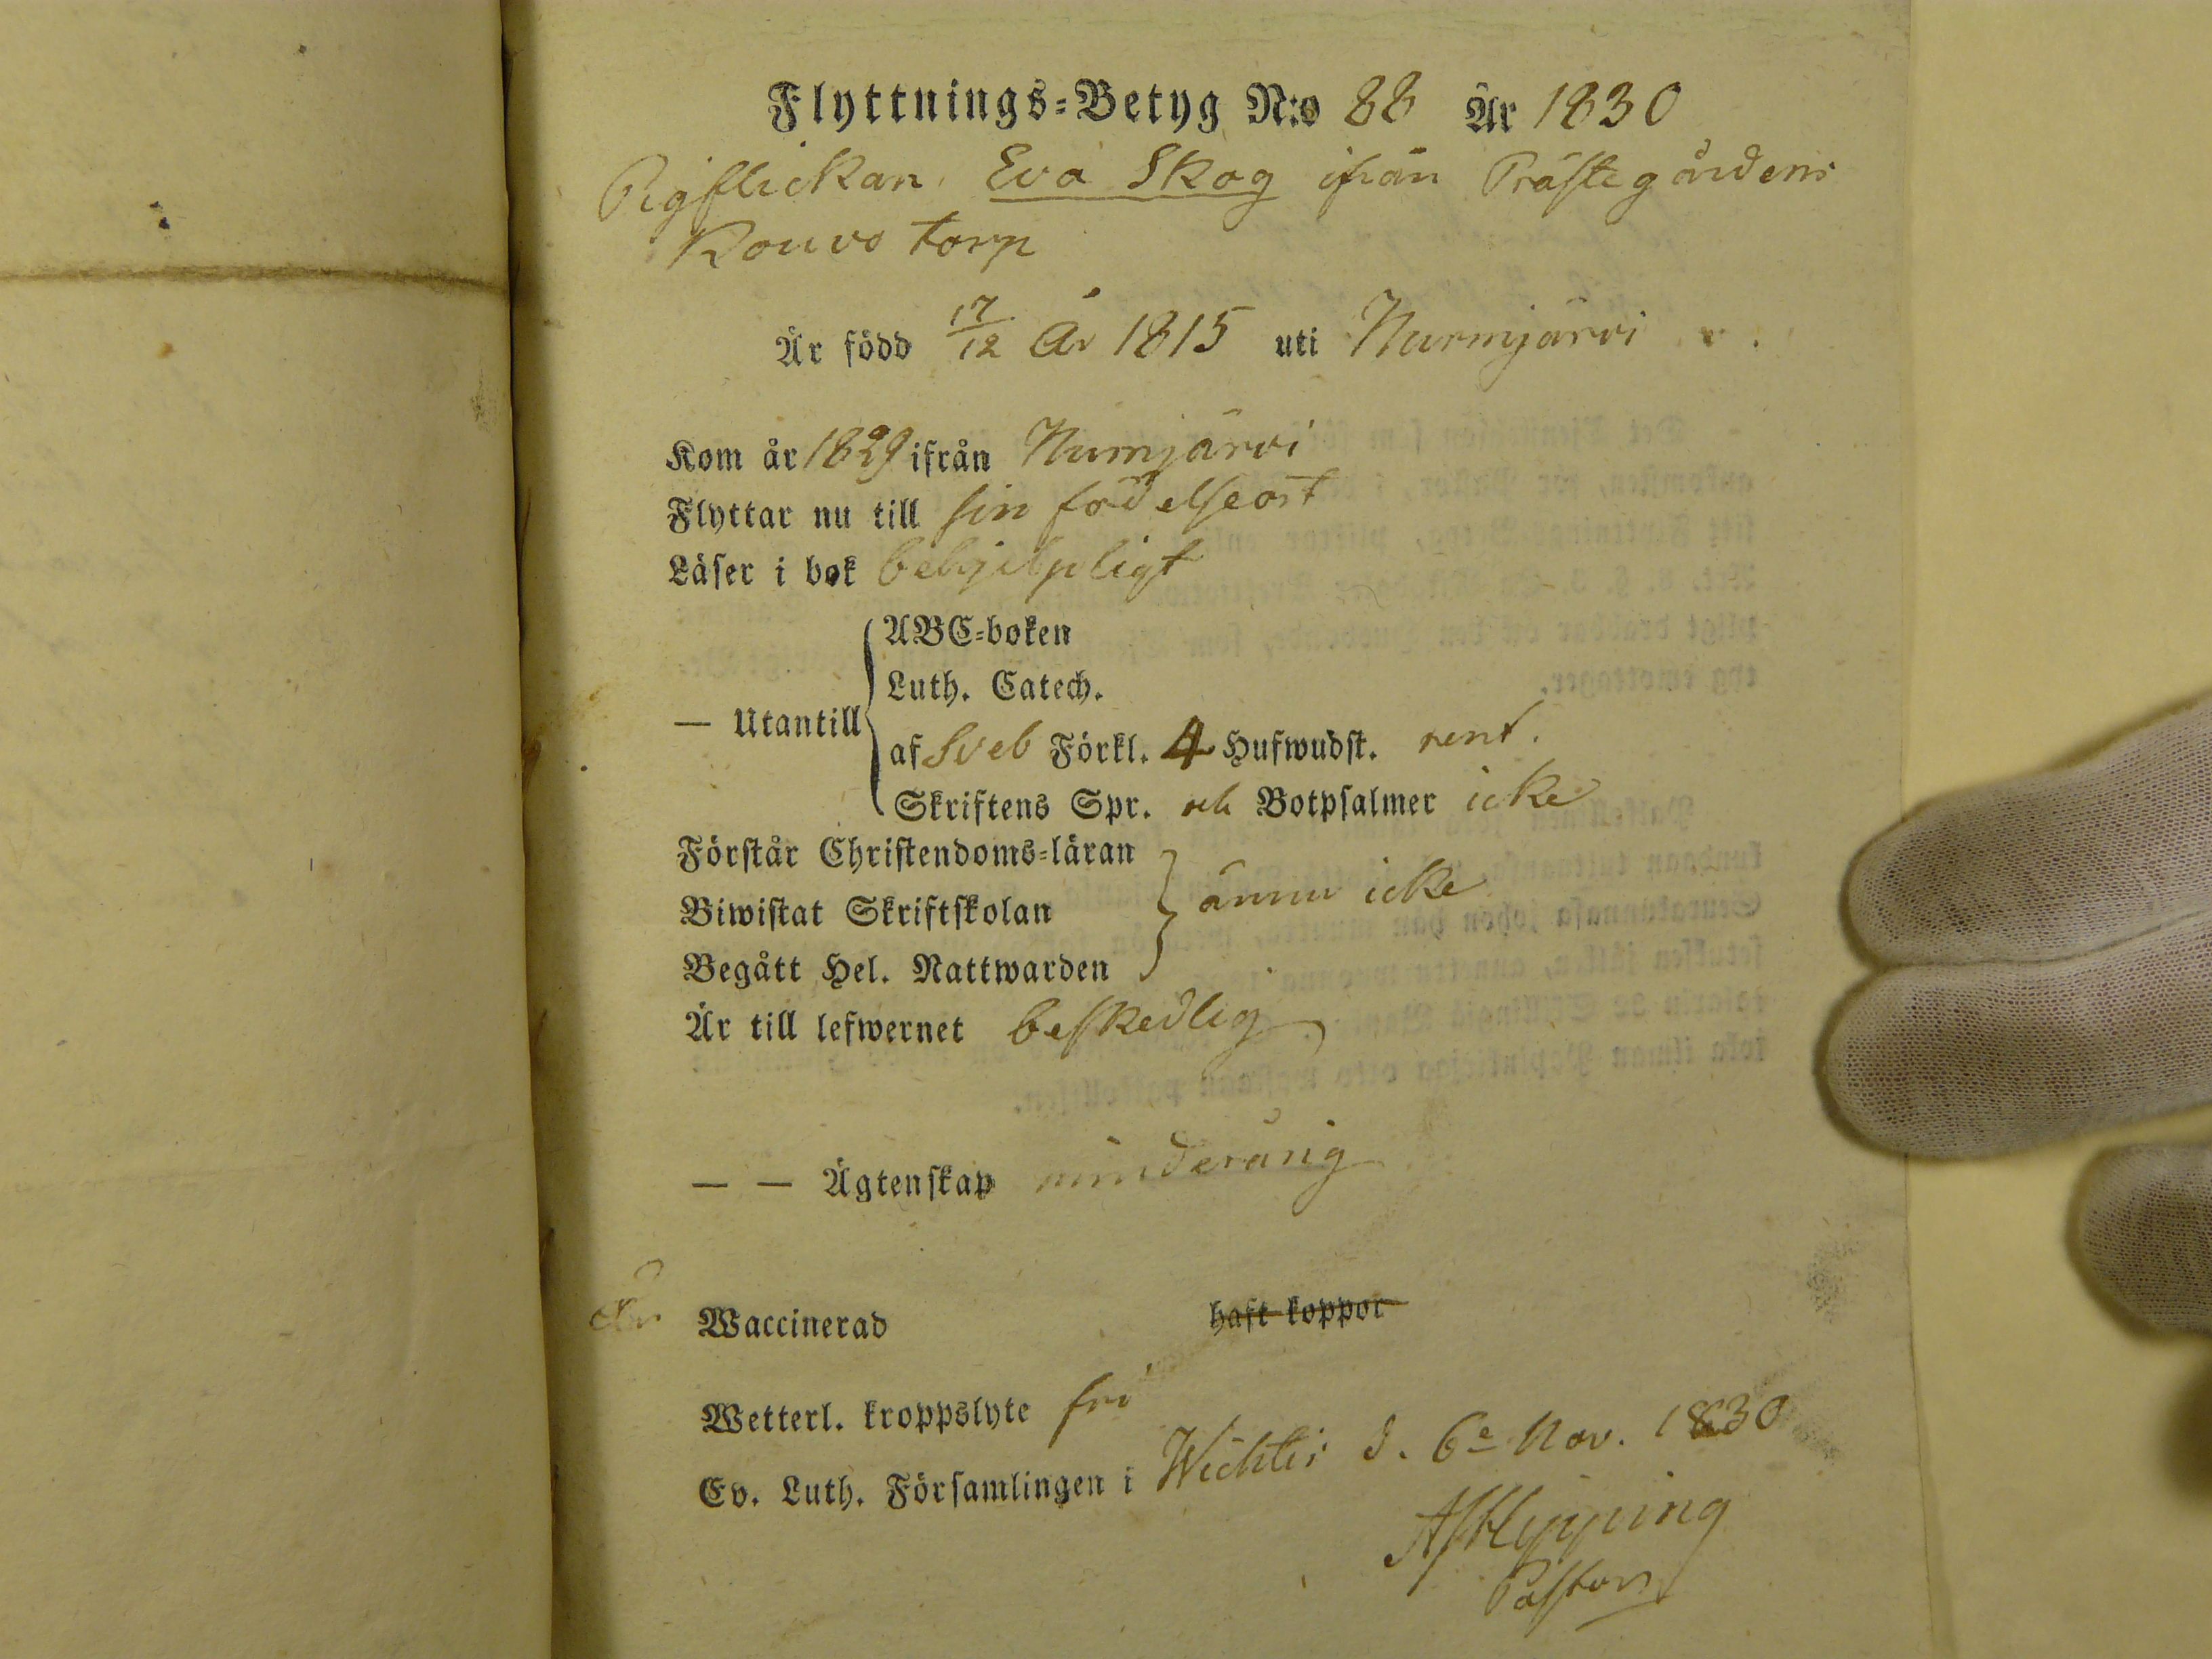 Flyttnings-Betyg N:o 88 År 1830
Pigflickan Eva Skog ifrån Prästegårdens
Rouvo torp
Är född 17/12 År 1815 uti Nurmjärvi
Kom år 1829 ifrån Numjärvi
Flyttar nu till sin födelseort
Läser i bok behjelpligt
ABC-boken
Luth. Catech.
— Utantill
af Sveb Förkl. 4 Hufwudst. rent.
Skriftens Spr. och Botpsalmer icke
Förstår Christendoms-läran
Biwistat Skriftskolan ännu icke
Begått Hel. Nattwarden
Är till lefwernet beskedlig
— — Ägtenskap minderårig
Är Waccinerad haft koppor
Wetterl. kroppslyte fri
Ev. Luth. Församlingen i Wichtis d. 6e Nov. 1830
Pastor